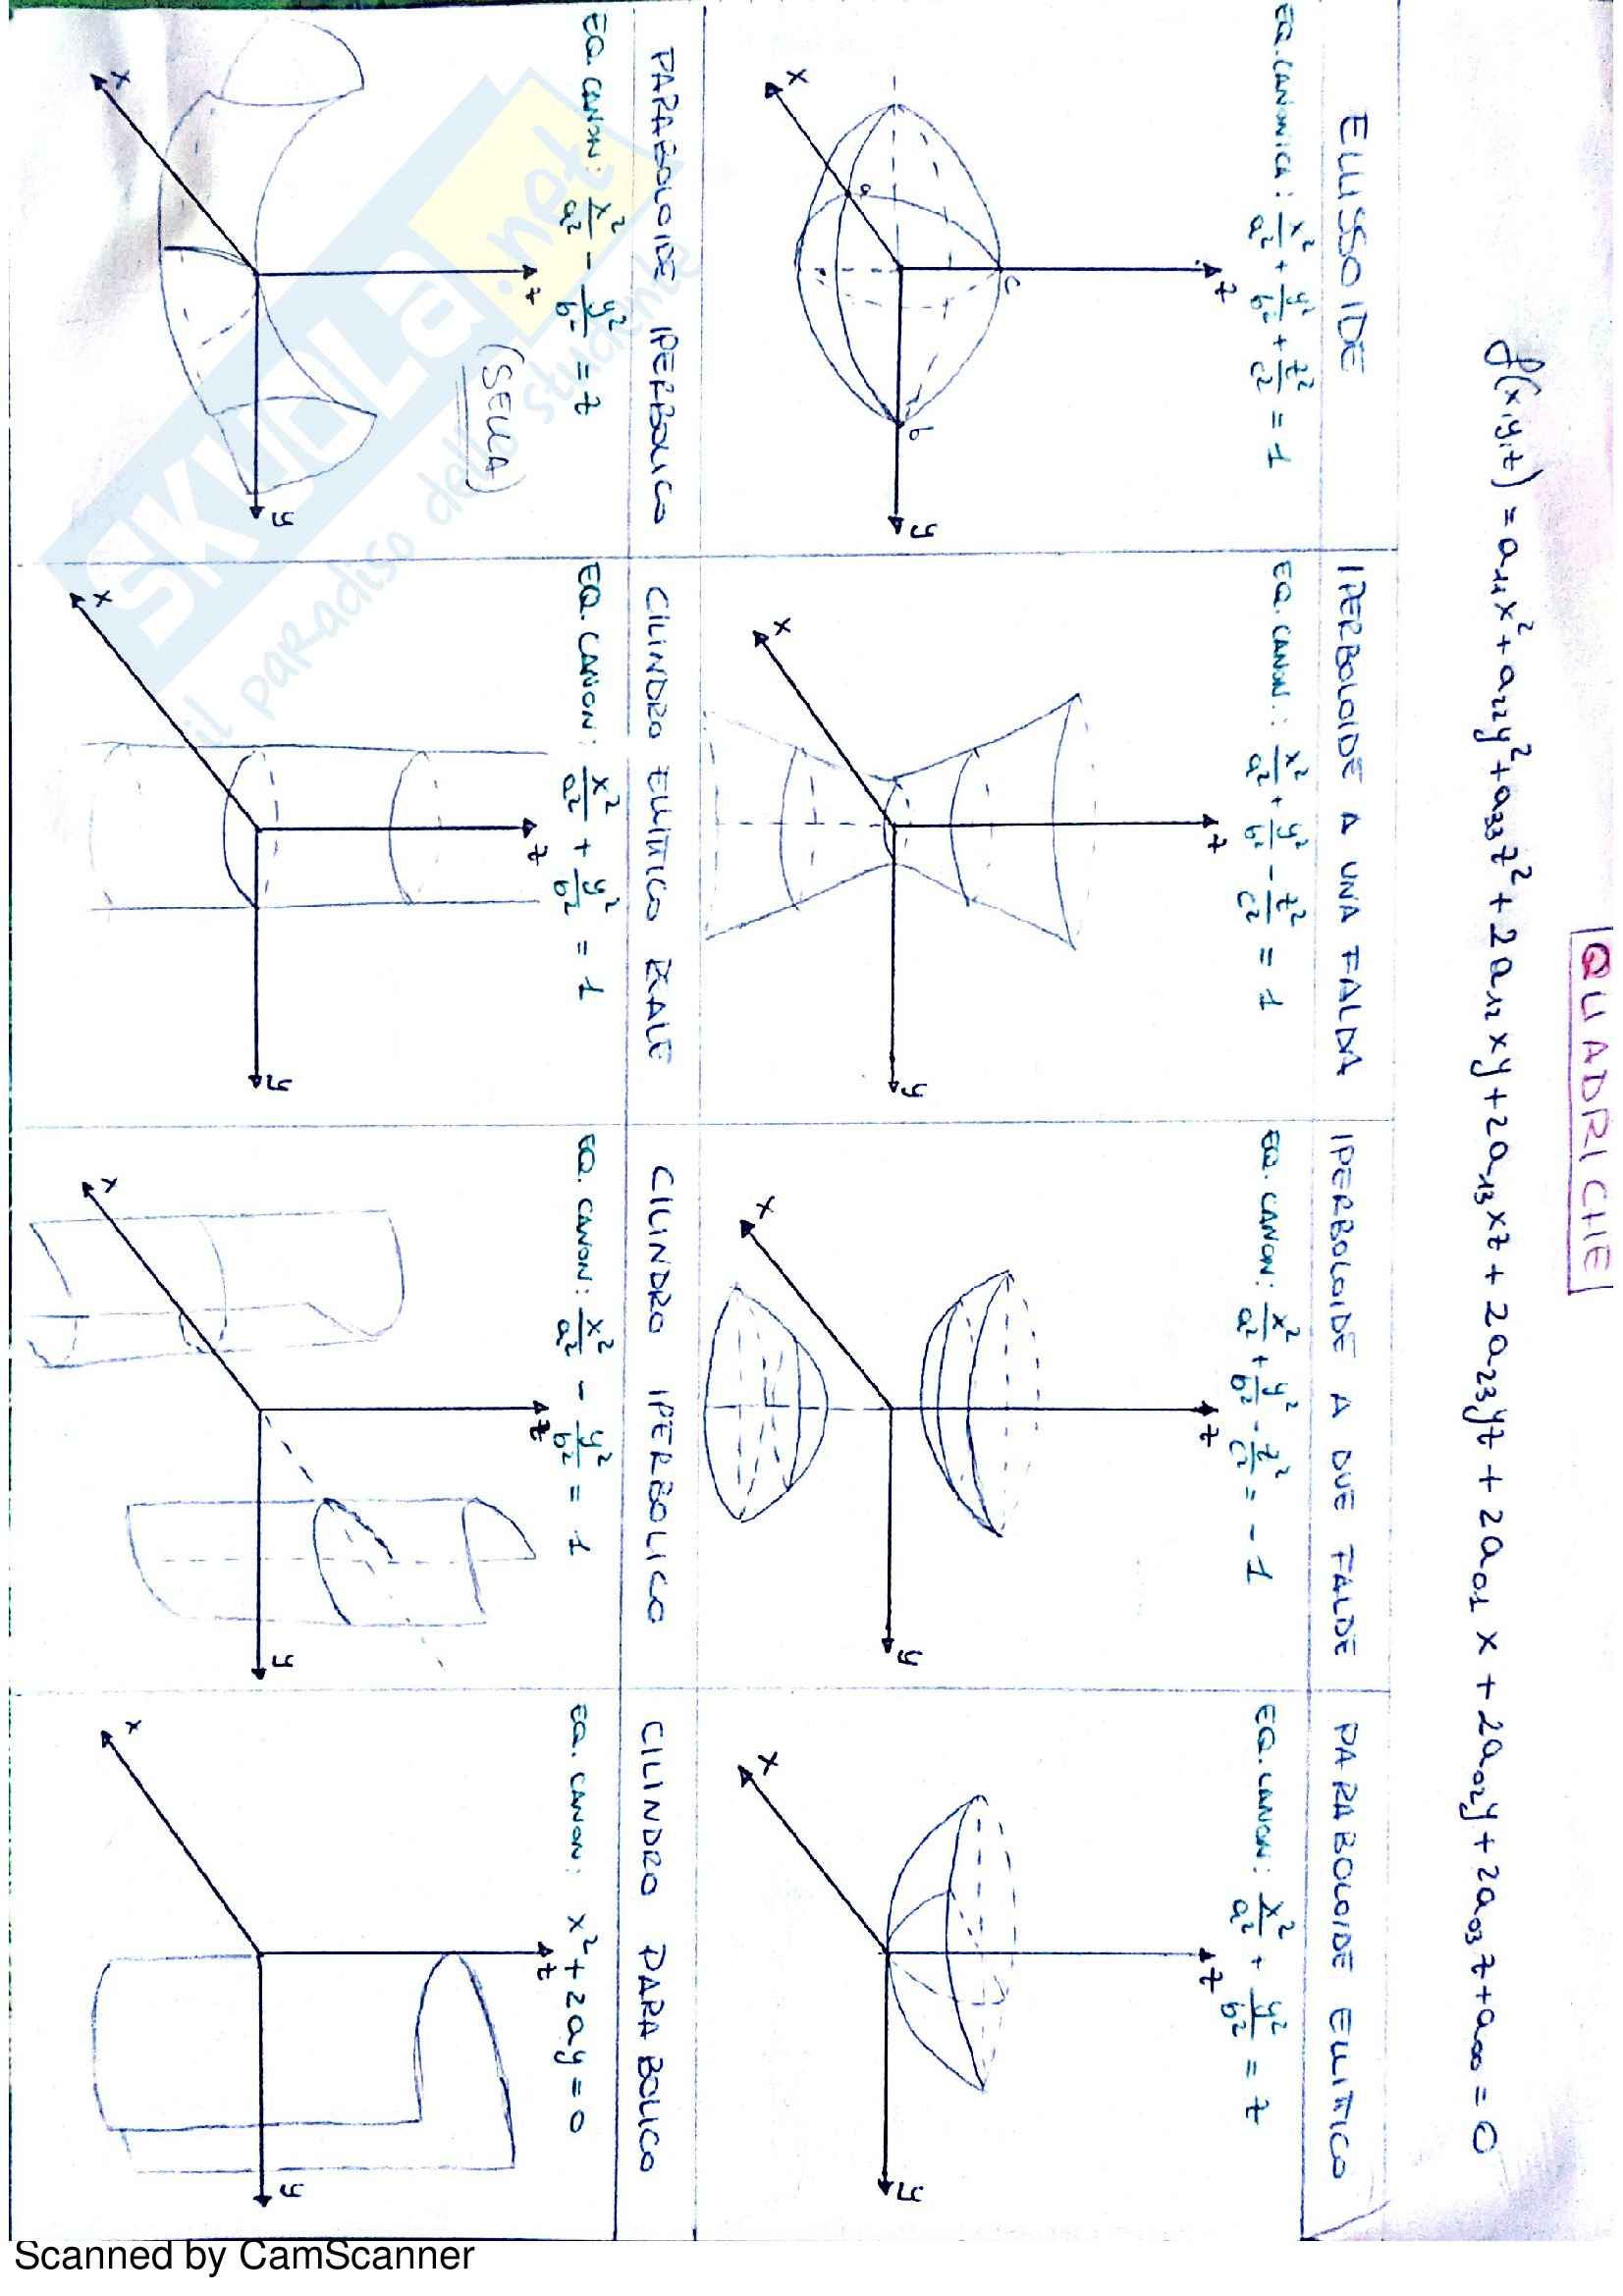 QUADRICHE
f(x,y,z) = a₁₁x² + a₂₂y² + a₃₃z² + 2a₁₂xy + 2a₁₃xz + 2a₂₃yz + 2a₀₁x + 2a₀₂y + 2a₀₃z + a₀₀ = 0
ELLISSOIDE
EQ. CANONICA: x²/a² + y²/b² + z²/c² = 1
z
c
a
b
x
y
IPERBOLOIDE A UNA FALDA
EQ. CANON.: x²/a² + y²/b² - z²/c² = 1
z
x
y
IPERBOLOIDE A DUE FALDE
EQ. CANON: x²/a² + y²/b² - z²/c² = -1
z
x
y
PARABOLOIDE ELLITTICO
EQ. CANON: x²/a² + y²/b² = z
z
x
y
PARABOLOIDE IPERBOLICO
EQ. CANON: x²/a² - y²/b² = z
(SELLA)
z
x
y
CILINDRO ELLITTICO REALE
EQ. CANON: x²/a² + y²/b² = 1
z
x
y
CILINDRO IPERBOLICO
EQ. CANON: x²/a² - y²/b² = 1
z
x
y
CILINDRO PARABOLICO
EQ. CANON: x² + 2ay = 0
z
x
y
SKUOLA.net
il paradiso dello studente
Scanned by CamScanner